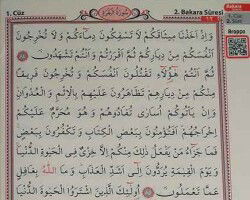 1. Cüz
سُورَةُ الْبَقَرَةِ
2. Bakara Sûresi
11
وَاِذْ اَخَذْنَا م۪يثَاقَكُمْ لَا تَسْفِكُونَ دِمَٓاءَكُمْ وَلَا تُخْرِجُونَ
اَنْفُسَكُمْ مِنْ دِيَارِكُمْ ثُمَّ اَقْرَرْتُمْ وَاَنْتُمْ تَشْهَدُونَ
ثُمَّ اَنْتُمْ هٰٓؤُ۬لَٓاءِ تَقْتُلُونَ اَنْفُسَكُمْ وَتُخْرِجُونَ فَر۪يقًا
مِنْكُمْ مِنْ دِيَارِهِمْ تَظَاهَرُونَ عَلَيْهِمْ بِالْاِثْمِ وَالْعُدْوَانِ
وَاِنْ يَأْتُوكُمْ اُسَارٰى تُفَادُوهُمْ وَهُوَ مُحَرَّمٌ عَلَيْكُمْ
اِخْرَاجُهُمْ اَفَتُؤْمِنُونَ بِبَعْضِ الْكِتَابِ وَتَكْفُرُونَ بِبَعْضٍ
فَمَا جَزَٓاءُ مَنْ يَفْعَلُ ذٰلِكَ مِنْكُمْ اِلَّا خِزْيٌ فِي الْحَيٰوةِ الدُّنْيَا
وَيَوْمَ الْقِيٰمَةِ يُرَدُّونَ اِلٰٓى اَشَدِّ الْعَذَابِ وَمَا اللّٰهُ بِغَافِلٍ
عَمَّا تَعْمَلُونَ اُو۬لٰٓئِكَ الَّذ۪ينَ اشْتَرَوُا الْحَيٰوةَ الدُّنْيَا
Bakara
1. Cüz
2. Sûre
Arapça